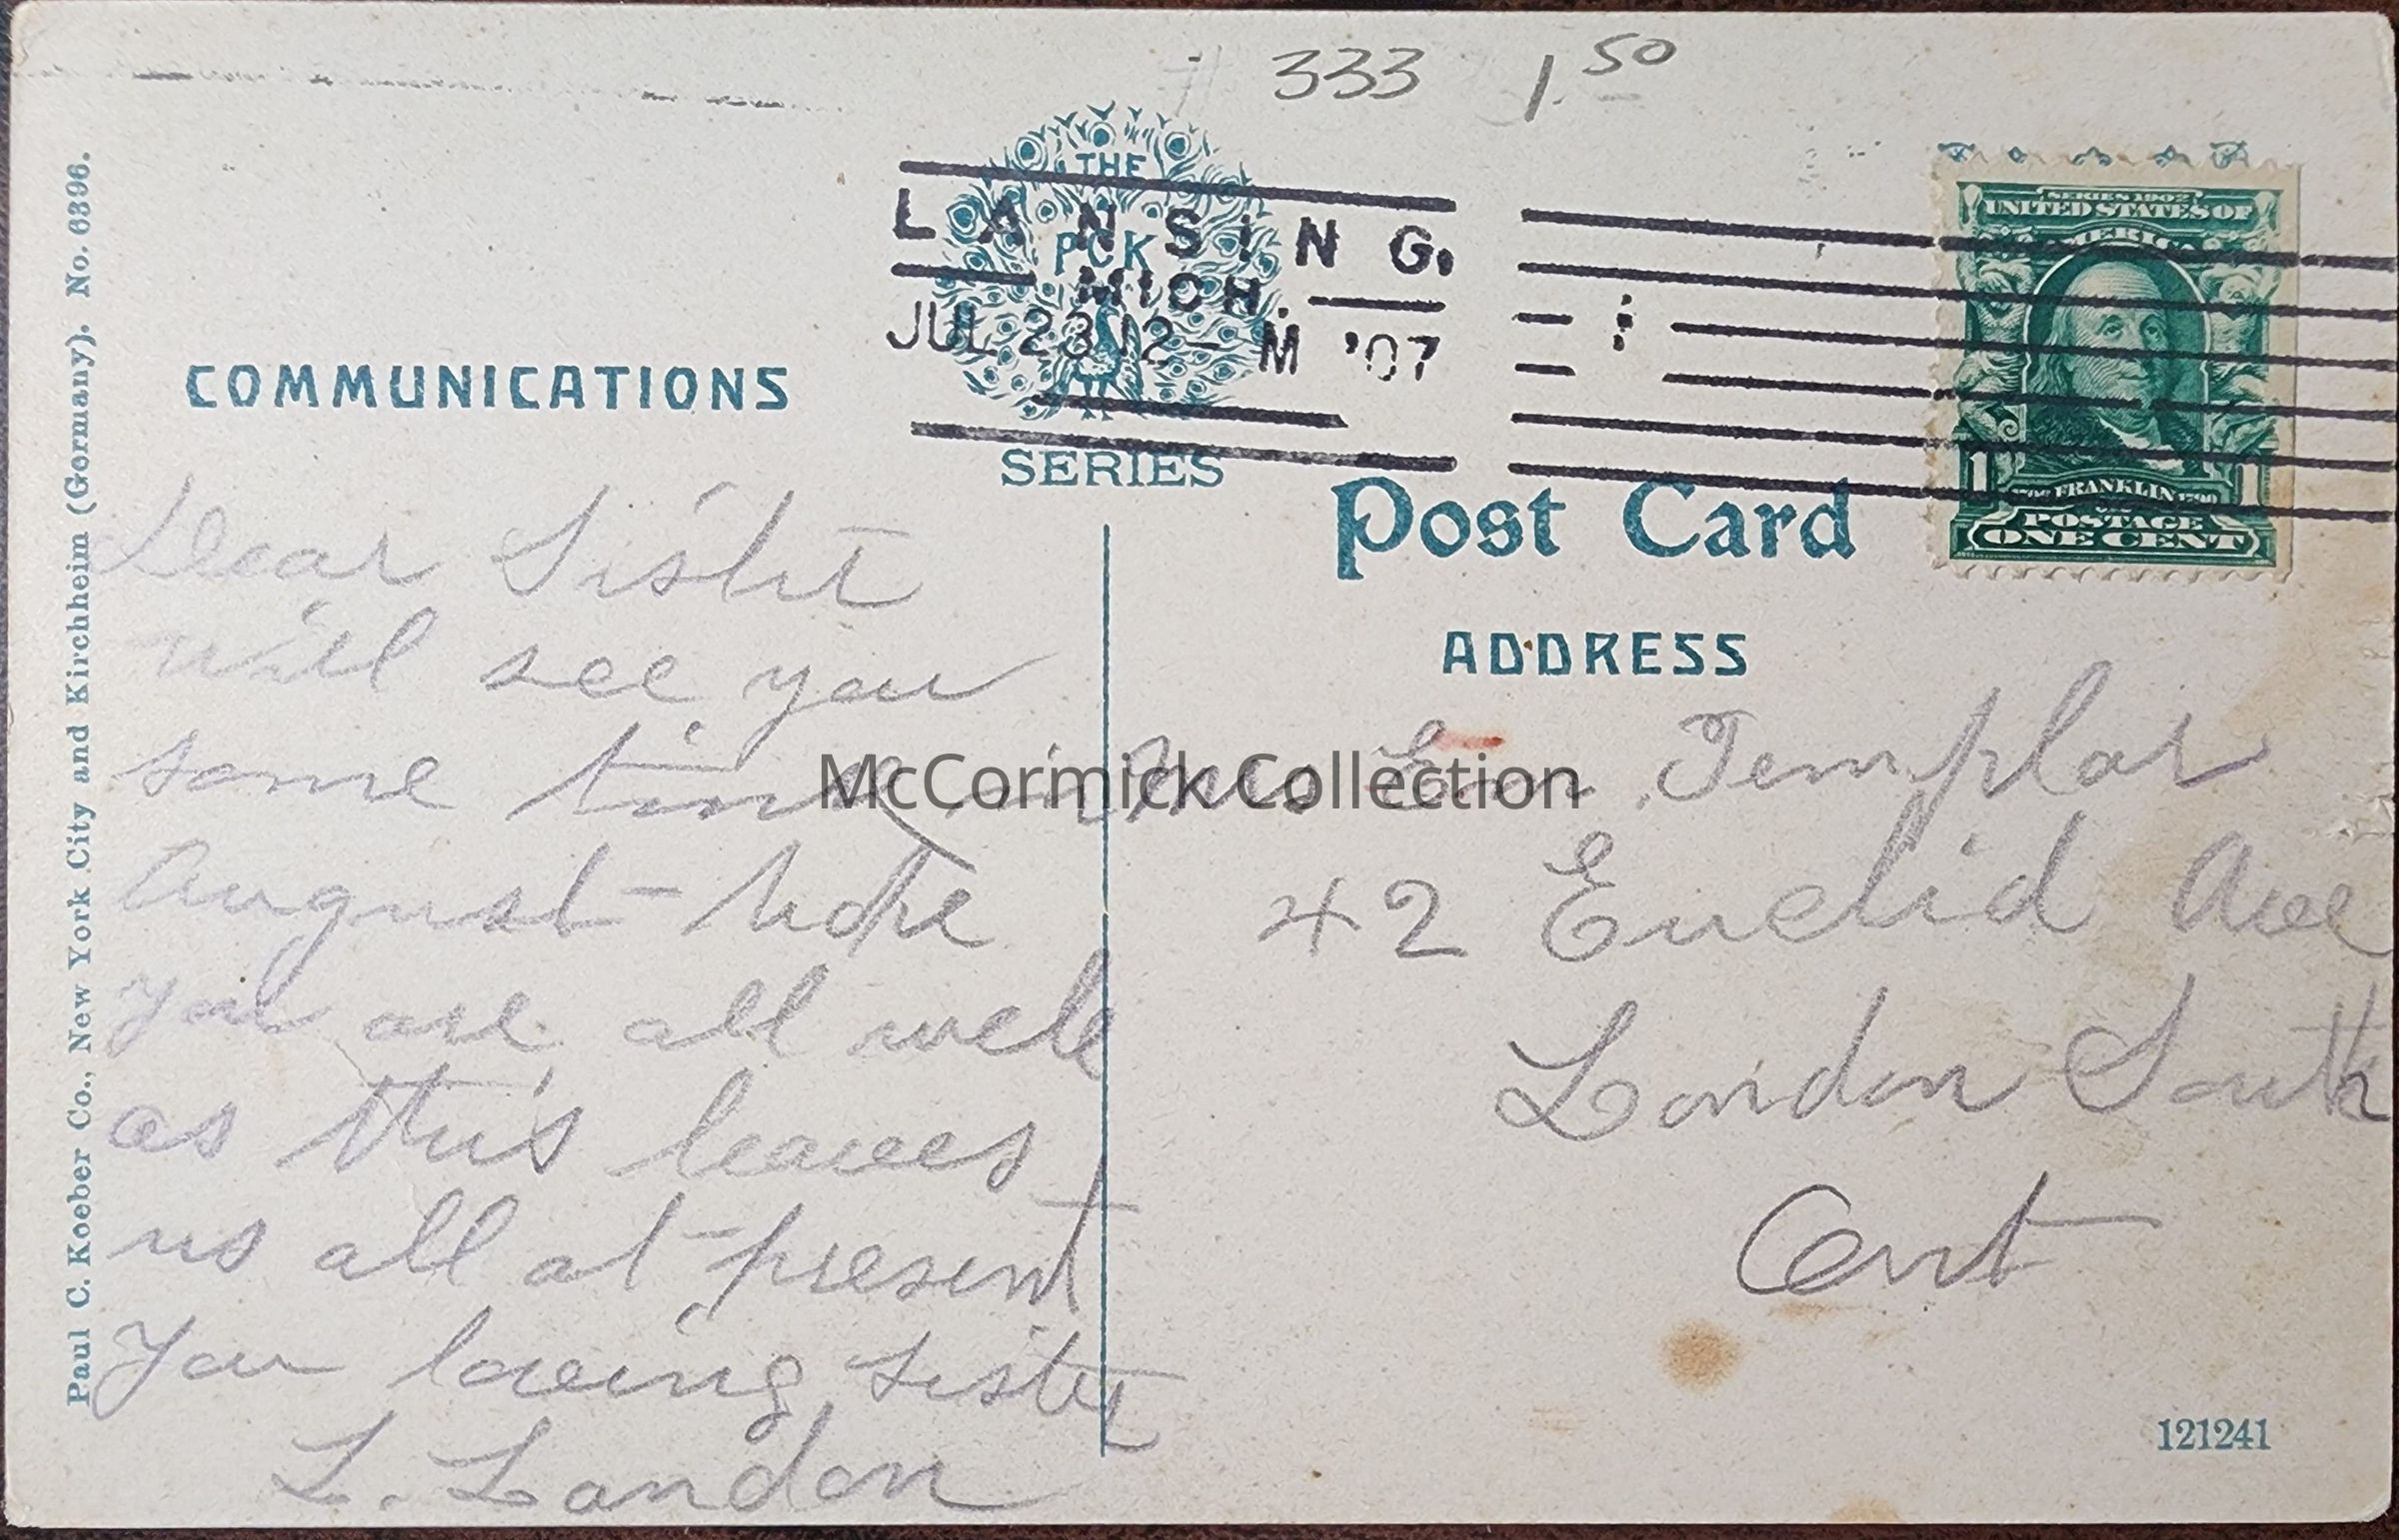 # 333 1.50
THE
PCK
SERIES
LANSING.
MICH.
JUL 23 12 - M '07
SERIES 1902
UNITED STATES OF
AMERICA
1 FRANKLIN 1
POSTAGE
ONE CENT
COMMUNICATIONS
Post Card
ADDRESS
Dear Sister
will see you
some time in
August hope
you are all well
as this leaves
us all at present
Your loving sister
L. Landon
Mrs Em Templar
42 Euclid Ave
London South
Ont
Paul C. Koeber Co., New York City and Kirchheim (Germany). No. 6396.
121241
McCormick Collection